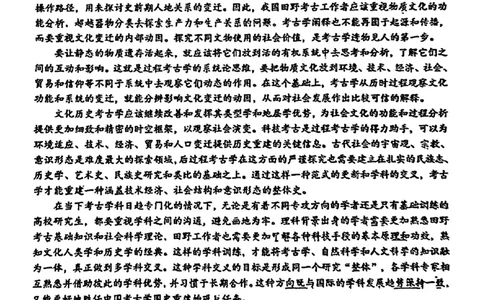 操作路径，用来探讨史前人地关系的变迁。因此，我国田野考古工作者应该重视物质文化的功
能分析，超越器物分类去探索生产力和生产关系的问题。考古学阐释也不能再囿于起源和传播，
而要重视文化变迁的内部动因。探究不同文物使用的社会价值，是考古学透物见人的第一步。
要让静态的物质遗存活起来，就应该将它们放到活的有机系统中去思考和分析，了解它们之
间的互动和影响。这就是过程考古学的系统论思维，要把物质文化放到环境、技术、经济、社会、
贸易和信仰等不同子系统中去观察它们动态的作用。在这个基础上，考古学从历时过程观察文化
功能和系统的变迁，就能分辨影响文化变迁的动因，从而对社会发展作出比较可信的解释。
文化历史考古学应该继续改善和发挥其类型学和地层学优势，为社会文化的功能和过程分析
提供更加细致和精密的时空框架，以观察社会演变。科技考古是过程考古学的得力助手，可以为
环境适应、技术、经济、贸易和人口变迁提供历史重建的关键信息。古代社会的宇宙观、宗教、
意识形态是难度最大的探索领域，后过程考古学在这方面的严谨探究也需要建立在扎实的民族志、
历史学、艺术史、民族史研究和类比的基础之上。通过这样一种范式的更新和学科的交叉，考古
学才能重建一种涵盖技术经济、社会结构和意识形态的整体史。
在当下考古学科目趋专门化的情况下，无论是有着不同专攻方向的学者还是只有基础训练的
高校研究生，都要重视学科之间的沟通，避免画地为牢。理科背景出身的学者需要更加熟悉田野
考古基础知识和社会科学理论，田野工作者也需要更加了解各种科技手段的基本原理和功效，熟
知文化人类学和历史学的经典。这样的学科训练，才能将考古学、自然科学和人文科学的知识融
为一体，真正做到多学科交叉。这种学科交叉的目标是形成同一个研究“整体”，各学科专家相
互熟悉并借助彼此的学科优势，并习惯于长期合作。这种方向既与国际的学科发展趋势保持一致，